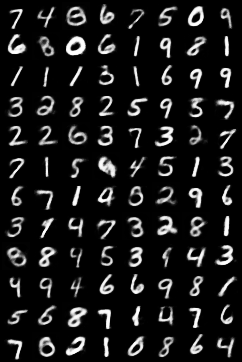 7 4 8 6 7 5 0 9
6 8 0 6 1 9 8 1
1 1 1 3 1 6 9 9
3 2 8 2 5 9 5 7
2 2 6 3 7 3 2 7
7 1 5 4 5 1 3
6 7 1 4 8 2 9 6
3 9 4 7 3 2 8 1
8 8 9 5 3 9 4 3
9 9 4 6 6 9 8 1
5 6 8 7 1 4 7 6
7 8 2 1 0 8 6 4